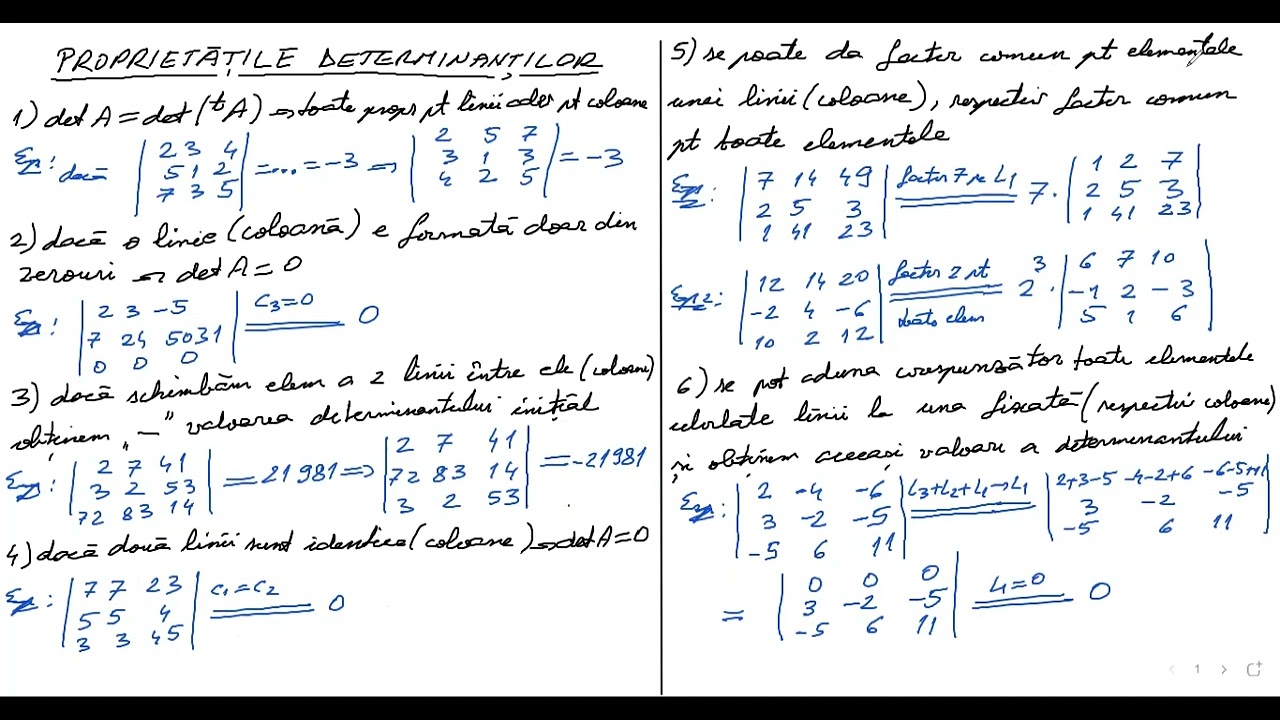 PROPRIETĂȚILE DETERMINANȚILOR
1) det A = det (ᵗA) ⇒ toate propr pt linii adev pt coloane
Ex: dacă | 2 3 4 | = ... = -3 ⇒ | 2 5 7 | = -3
| 5 1 2 | | 3 1 3 |
| 7 3 5 | | 4 2 5 |
2) dacă o linie (coloană) e formată doar din
zerouri ⇒ det A = 0
Ex: | 2 3 -5 | C₃=0 0
| 7 24 5031 |
| 0 0 0 |
3) dacă schimbăm elem a 2 linii între ele (coloane)
obținem „-” valoarea determinantului inițial
Ex: | 2 7 41 | = 21981 ⇒ | 2 7 41 | = -21981
| 3 2 53 | | 72 83 14 |
| 72 83 14 | | 3 2 53 |
4) dacă două linii sunt identice (coloane) ⇒ det A = 0
Ex: | 7 7 23 | C₁=C₂ 0
| 5 5 4 |
| 3 3 45 |
5) se poate da factor comun pt elementele
unei linii (coloane), respectiv factor comun
pt toate elementele
Ex1: | 7 14 49 | factor 7 pe L₁ 7 · | 1 2 7 |
| 2 5 3 | | 2 5 3 |
| 1 41 23 | | 1 41 23 |
Ex2: | 12 14 20 | factor 2 pt toate elem 2³ · | 6 7 10 |
| -2 4 -6 | | -1 2 -3 |
| 10 2 12 | | 5 1 6 |
6) se pot aduna corespunzător toate elementele
celorlalte linii la una fixată (respectiv coloane)
și obținem aceeași valoare a determinantului
Ex: | 2 -4 -6 | L₃+L₂+L₁→L₁ | 2+3-5 -4-2+6 -6-5+11 |
| 3 -2 -5 | | 3 -2 -5 |
| -5 6 11 | | -5 6 11 |
= | 0 0 0 | L₁=0 0
| 3 -2 -5 |
| -5 6 11 |
< 1 >